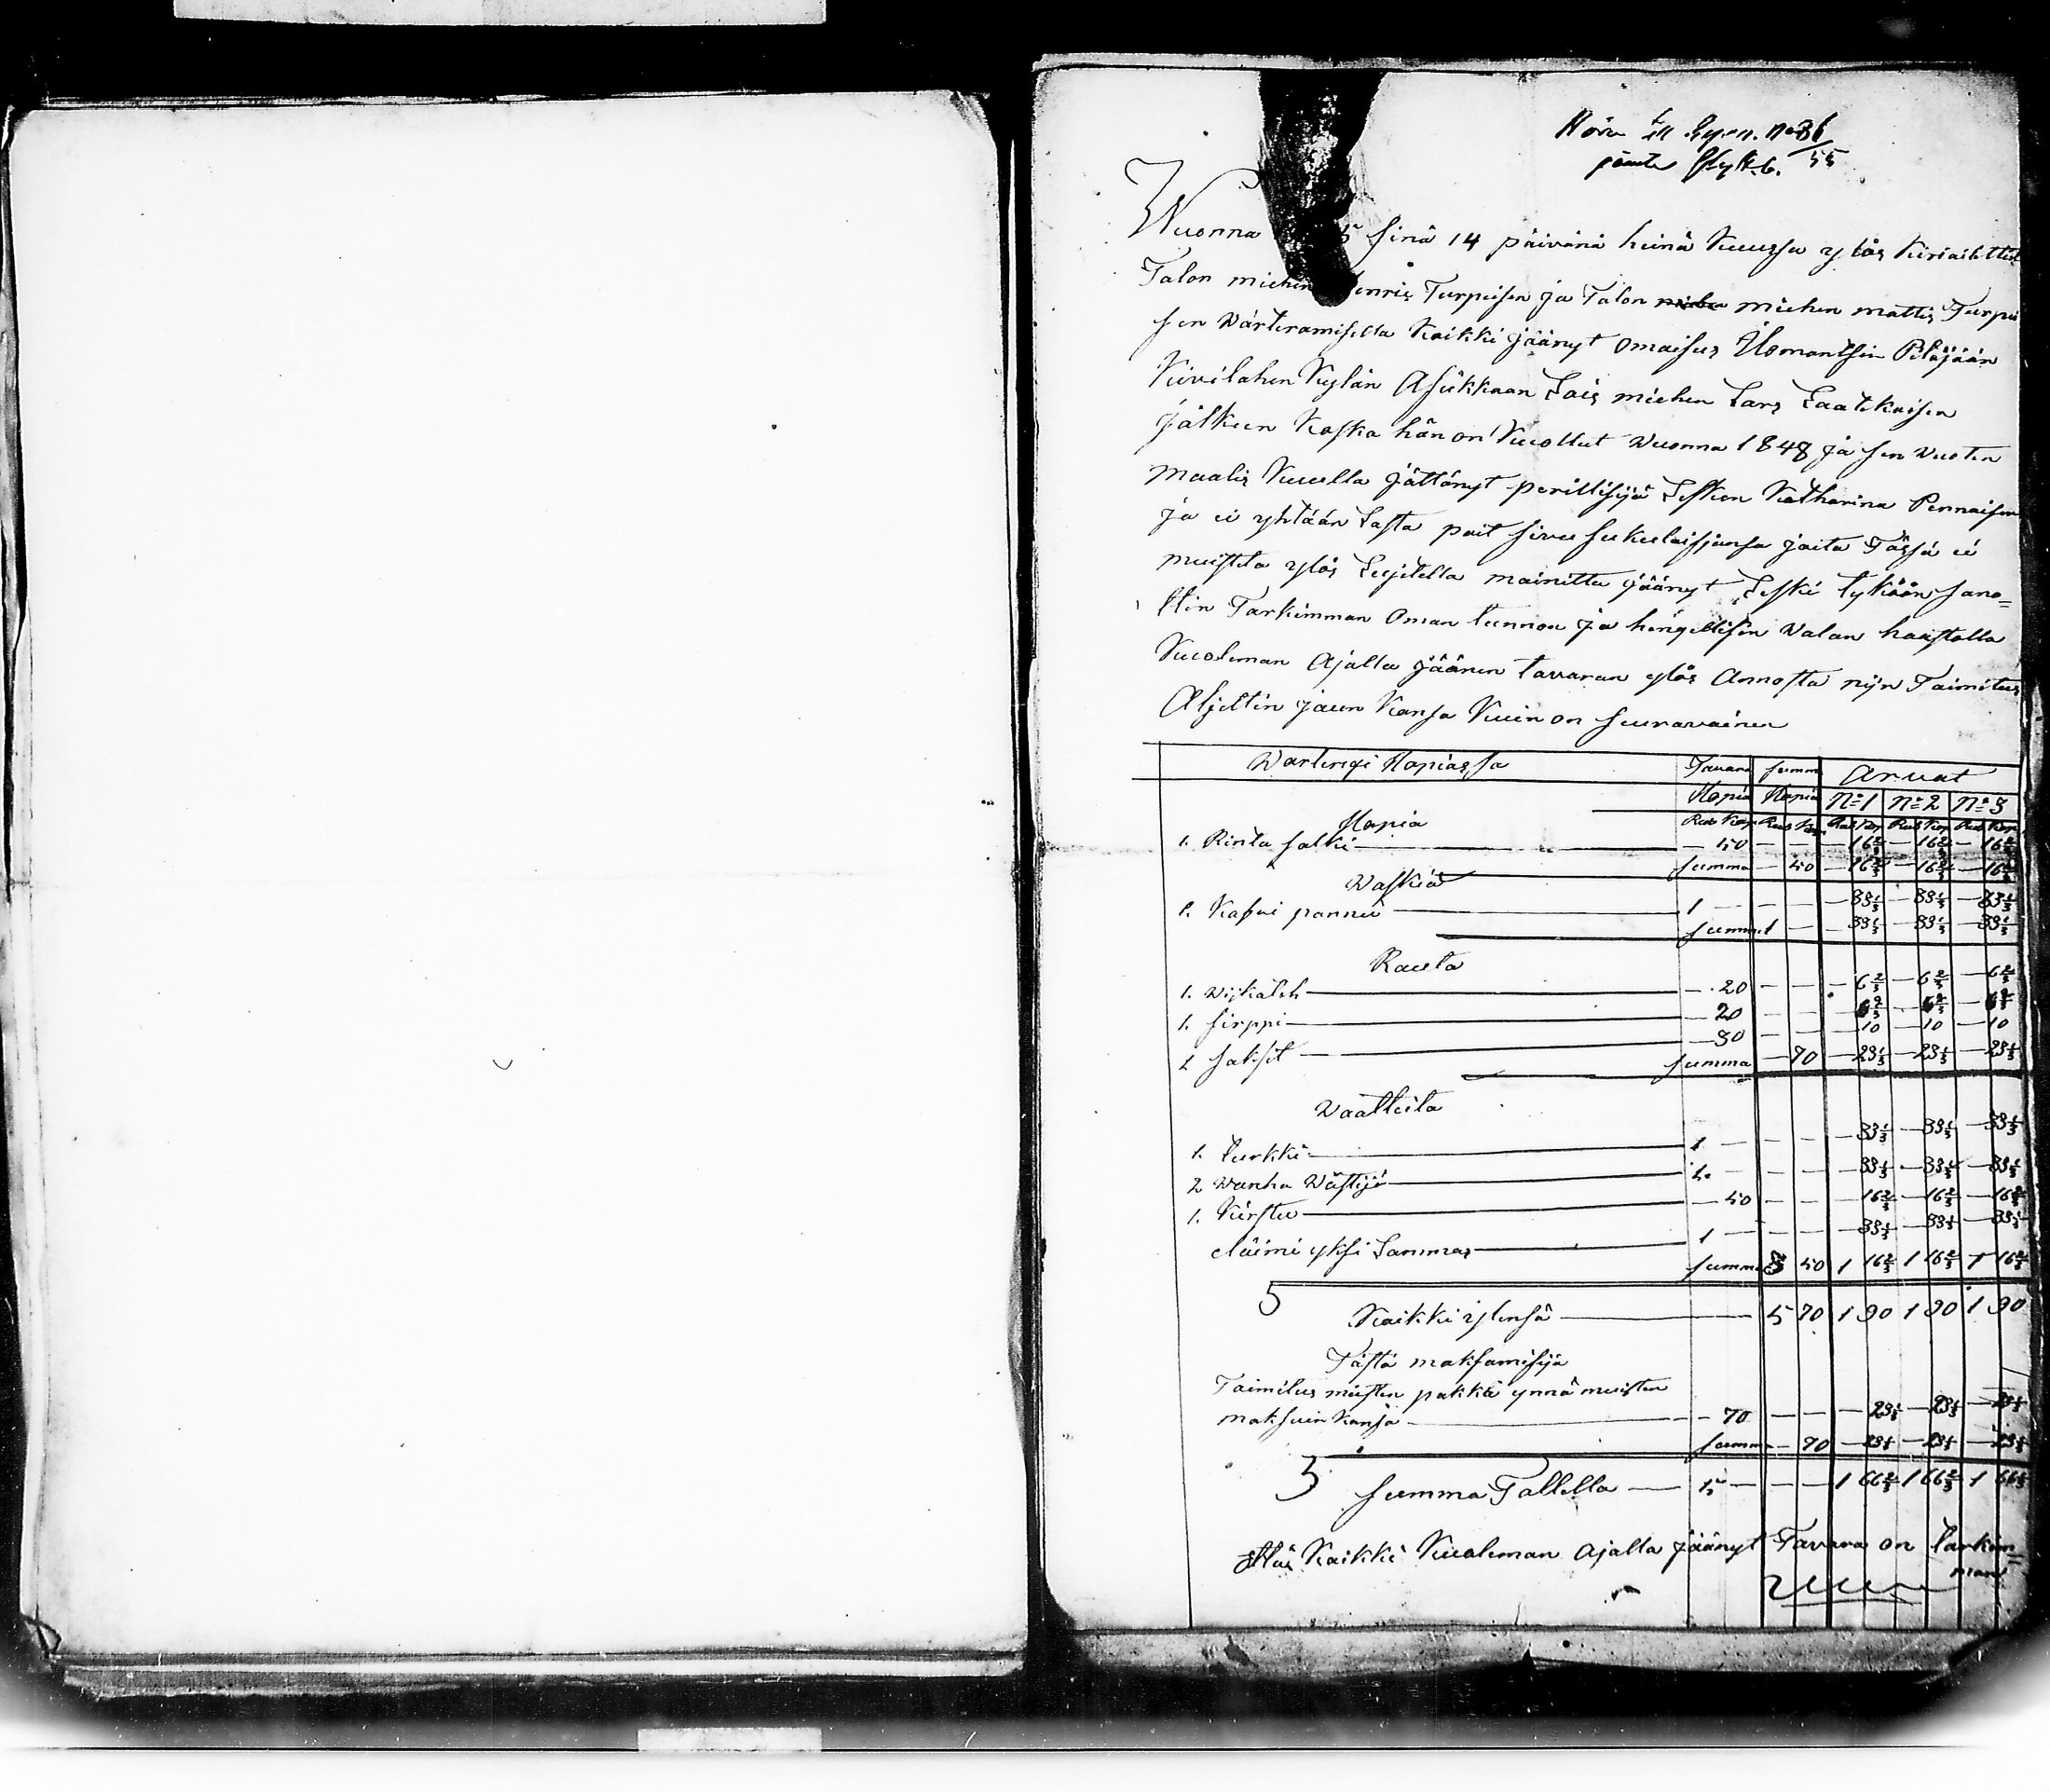 Höra till Exp. N. No 86/55
Wuonna 5 sinä 14 päivänä heinä Kuussa ylös Kiriaitettiin
Talon miehen Henric Turpeisen ja Talon miehen mattis Turpei
sen Wärteramisella Kaikki jäänyt omaisus Ilomantsin Pitäjään
Kivilahen Kylän Asukkaan Lois miehen Lars Laatikaisen
jälkeen Koska hän on Kuollut Wuonna 1848 ja sen Wuoten
Maalis Kuulla jättänyt perillisijä Lesken Katharina Pennaisen
ja ei yhtään Lasta pait sivu sukulaisjansa joita Tässä ei
muisteta ylös Lujetella mainittu jäänyt Leski tykään sano=
ttin Tarkimman Oman tunnon ja hengellisen Walan haastolla
Kuoleman Ajalla jäänen tavaran ylös Annosta nijn Toimitus
Aljettin jaun Kansa Kuin on seuravainen
Warlingi Hopiassa Tavara summa Arvat
Hopia Hopia No 1 No 2 No 3
Hopia Rub Kop Rub Kop Rub Kop Rub Kop Rub Kop
1. Rinta solki — 50 — — — 16 2/3 — 16 2/3 — 16 2/3
summa — 50 — 16 2/3 — 16 2/3 — 16 2/3
Waskia
1. Kahvi pannu 1 — — — — 33 1/3 — 33 1/3 — 33 1/3
summa 1 — — 33 1/3 — 33 1/3 — 33 1/3
Rauta
1. Wijkateh — 20 — — — 6 2/3 — 6 2/3 — 6 2/3
1. sirppi — 20 — — — 6 2/3 — 6 2/3 — 6 2/3
1 saksit — 30 — — — 10 — 10 — 10
summa — 70 — 23 1/3 — 23 1/3 — 23 1/3
Waatteita
1. turkki 1 — — — — 33 1/3 — 33 1/3 — 33 1/3
2 Wanha Wästijä 1. — — — — 33 1/3 — 33 1/3 — 33 1/3
1. Kirstu — 50 — — — 16 2/3 — 16 2/3 — 16 2/3
eläimi yksi Lammas 1 — — — — 33 1/3 — 33 1/3 — 33 1/3
summa 3 50 1 16 2/3 1 16 2/3 1 16 2/3
Kaikki ylensä 5 70 1 90 1 90 1 90
Tästä maksamisija
Toimitus miesten palkka ynnä muisten
maksuin Kansa — 70 — — — 23 1/3 — 23 1/3 — 23 1/3
summa — 70 — 23 1/3 — 23 1/3 — 23 1/3
summa Tallella 5 — — — 1 66 2/3 1 66 2/3 1 66 2/3
Että Kaikki Kuoleman Ajalla jäänyt Tavara on tarkim=
man